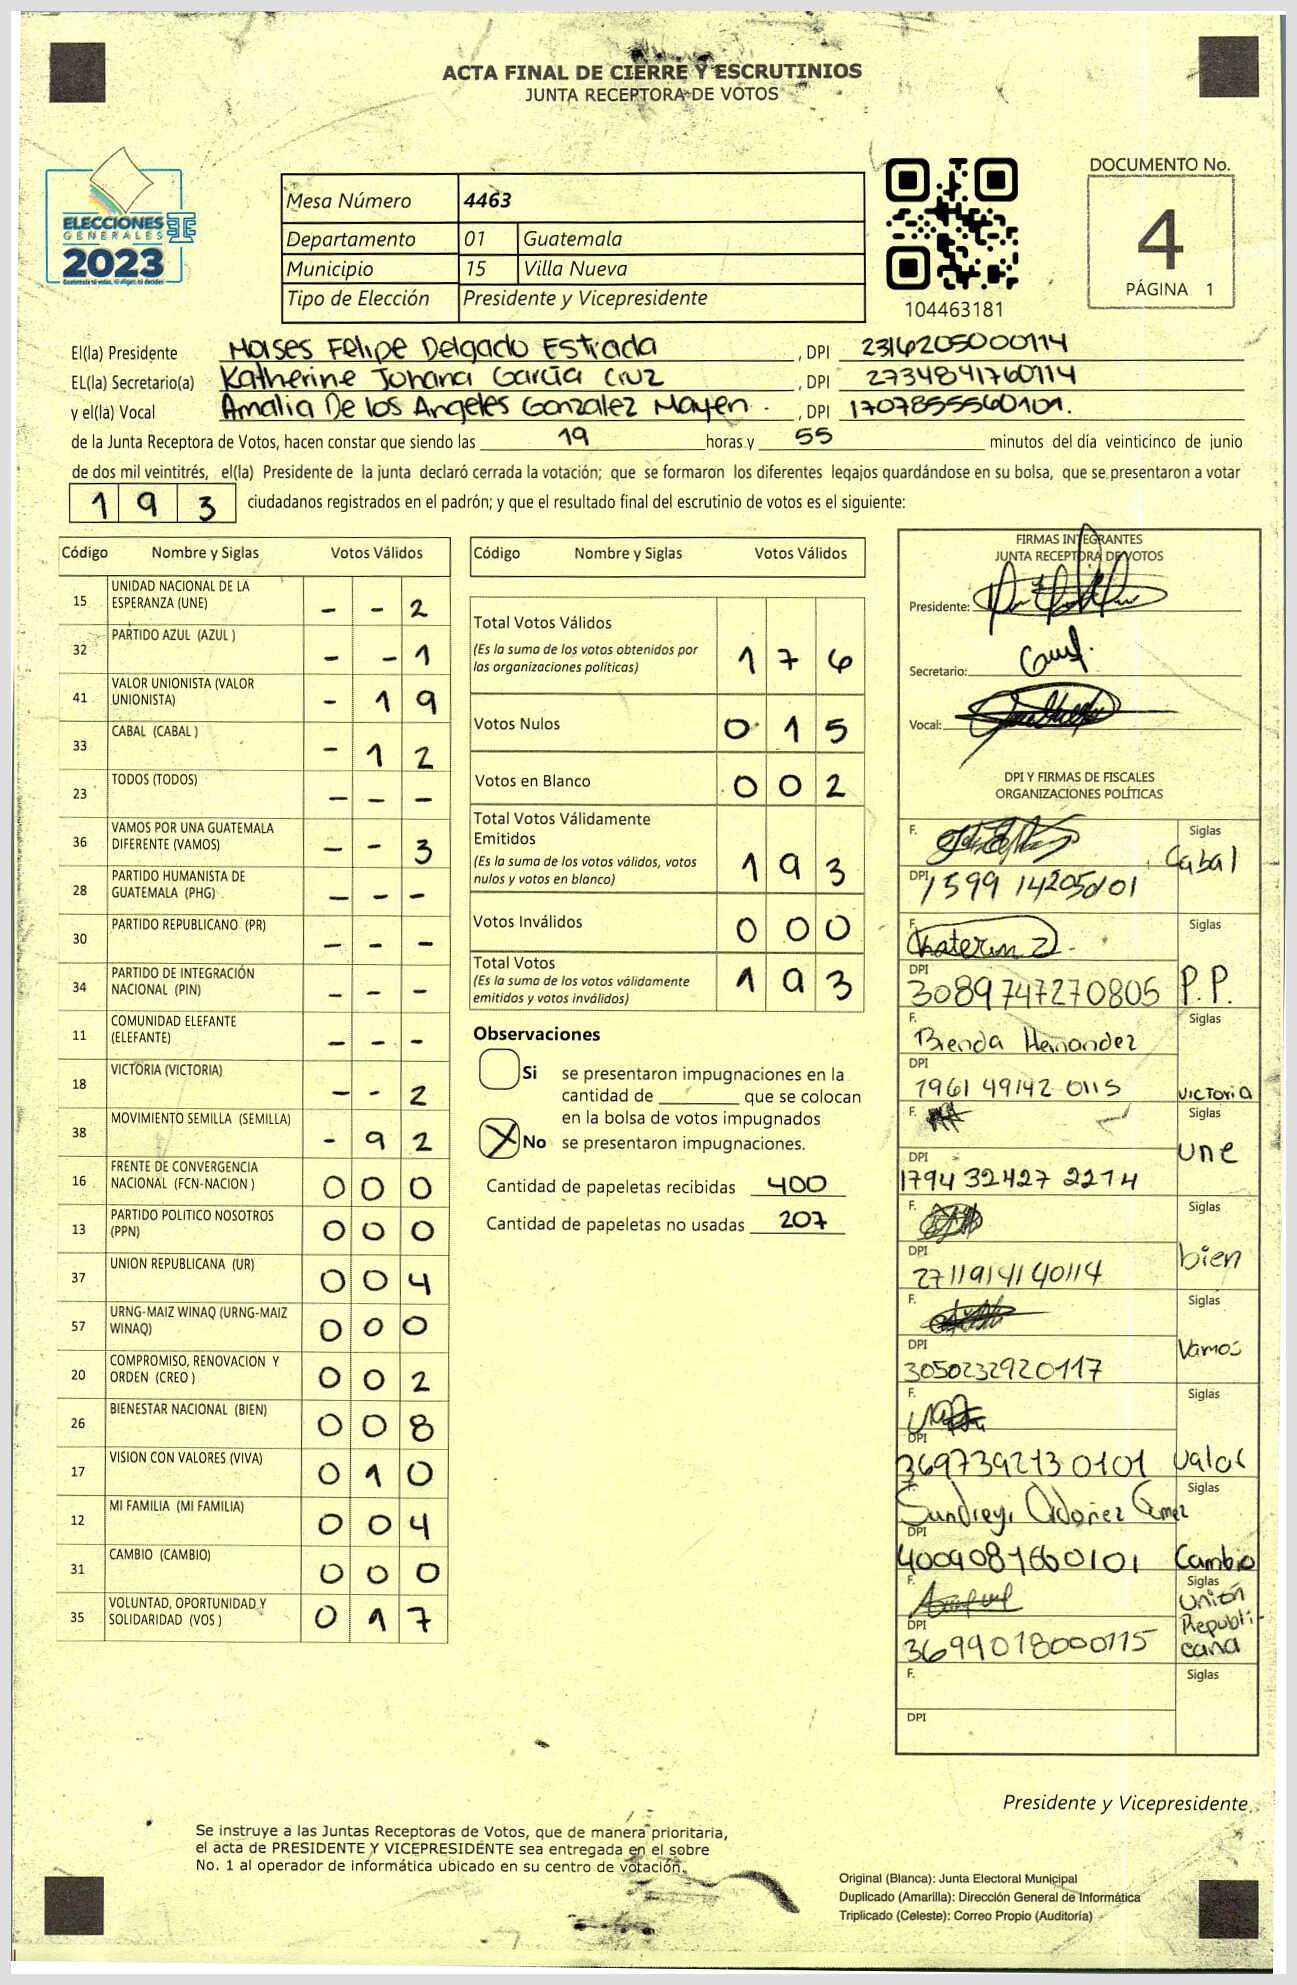 ACTA FINAL DE CIERRE Y ESCRUTINIOS
JUNTA RECEPTORA DE VOTOS
ELECCIONES
GENERALES
2023
Mesa Número 4463
Departamento 01 Guatemala
Municipio 15 Villa Nueva
Tipo de Elección Presidente y Vicepresidente
104463181
DOCUMENTO No.
4
PÁGINA 1
El(la) Presidente Moises Felipe Delgado Estrada , DPI 2316205000114
EL(la) Secretario(a) Katherine Johana García Cruz , DPI 2734841760114
y el(la) Vocal Amalia De los Angeles Gonzalez Mayen. , DPI 1707855560101.
de la Junta Receptora de Votos, hacen constar que siendo las 19 horas y 55 minutos del día veinticinco de junio
de dos mil veintitrés, el(la) Presidente de la junta declaró cerrada la votación; que se formaron los diferentes legajos guardándose en su bolsa, que se presentaron a votar
1 9 3 ciudadanos registrados en el padrón; y que el resultado final del escrutinio de votos es el siguiente:
Código Nombre y Siglas Votos Válidos
15 UNIDAD NACIONAL DE LA ESPERANZA (UNE) - - 2
32 PARTIDO AZUL (AZUL ) - - 1
41 VALOR UNIONISTA (VALOR UNIONISTA) - 1 9
33 CABAL (CABAL ) - 1 2
23 TODOS (TODOS) - - -
36 VAMOS POR UNA GUATEMALA DIFERENTE (VAMOS) - - 3
28 PARTIDO HUMANISTA DE GUATEMALA (PHG) - - -
30 PARTIDO REPUBLICANO (PR) - - -
34 PARTIDO DE INTEGRACIÓN NACIONAL (PIN) - - -
11 COMUNIDAD ELEFANTE (ELEFANTE) - - -
18 VICTORIA (VICTORIA) - - 2
38 MOVIMIENTO SEMILLA (SEMILLA) - 9 2
16 FRENTE DE CONVERGENCIA NACIONAL (FCN-NACION ) 0 0 0
13 PARTIDO POLITICO NOSOTROS (PPN) 0 0 0
37 UNION REPUBLICANA (UR) 0 0 4
57 URNG-MAIZ WINAQ (URNG-MAIZ WINAQ) 0 0 0
20 COMPROMISO, RENOVACION Y ORDEN (CREO ) 0 0 2
26 BIENESTAR NACIONAL (BIEN) 0 0 8
17 VISION CON VALORES (VIVA) 0 1 0
12 MI FAMILIA (MI FAMILIA) 0 0 4
31 CAMBIO (CAMBIO) 0 0 0
35 VOLUNTAD, OPORTUNIDAD Y SOLIDARIDAD (VOS ) 0 1 7
Código Nombre y Siglas Votos Válidos
Total Votos Válidos 1 7 6
(Es la suma de los votos obtenidos por
las organizaciones políticas)
Votos Nulos 0 1 5
Votos en Blanco 0 0 2
Total Votos Válidamente
Emitidos 1 9 3
(Es la suma de los votos válidos, votos
nulos y votos en blanco)
Votos Inválidos 0 0 0
Total Votos 1 9 3
(Es la suma de los votos válidamente
emitidos y votos inválidos)
Observaciones
Si se presentaron impugnaciones en la
cantidad de ________ que se colocan
en la bolsa de votos impugnados
X No se presentaron impugnaciones.
Cantidad de papeletas recibidas 400
Cantidad de papeletas no usadas 207
FIRMAS INTEGRANTES
JUNTA RECEPTORA DE VOTOS
Presidente:
Secretario:
Vocal:
DPI Y FIRMAS DE FISCALES
ORGANIZACIONES POLÍTICAS
F. Siglas
Cabal
DPI 1599 14205 0101
F. Siglas
DPI 3089747270805 P.P.
F. Siglas
Brenda Hernandez
DPI
1961 49142 0115 Victoria
F. Siglas
une
DPI
1794 32427 2214
F. Siglas
bien
DPI
2711914140114
F. Siglas
Vamos
DPI
3050232920117
F. Siglas
DPI
3697392130101 Valor
F. Siglas
DPI
4009081660101 Cambio
F. Siglas
Unión
Republi-
cana
DPI
3699018000115
F. Siglas
DPI
Presidente y Vicepresidente
Se instruye a las Juntas Receptoras de Votos, que de manera prioritaria,
el acta de PRESIDENTE Y VICEPRESIDENTE sea entregada en el sobre
No. 1 al operador de informática ubicado en su centro de votación.
Original (Blanca): Junta Electoral Municipal
Duplicado (Amarilla): Dirección General de Informática
Triplicado (Celeste): Correo Propio (Auditoría)